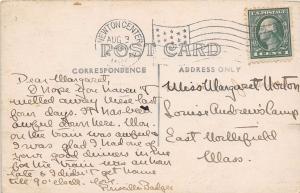 NEWTON CENTER
AUG 3
POST CARD
CORRESPONDENCE
ADDRESS ONLY
Dear Margaret,
I hope you haven't
melted away these last
four days. It has been
awful down here. Mon.
on the train was awful.
I was glad I had one of
your good dinners in me
for the train was an hour
late & I didn't get home
till 9 o'clock. Love
Priscilla Badger
Miss Margaret Norton
Louise Andrews Camp
East Hallifield
Mass.